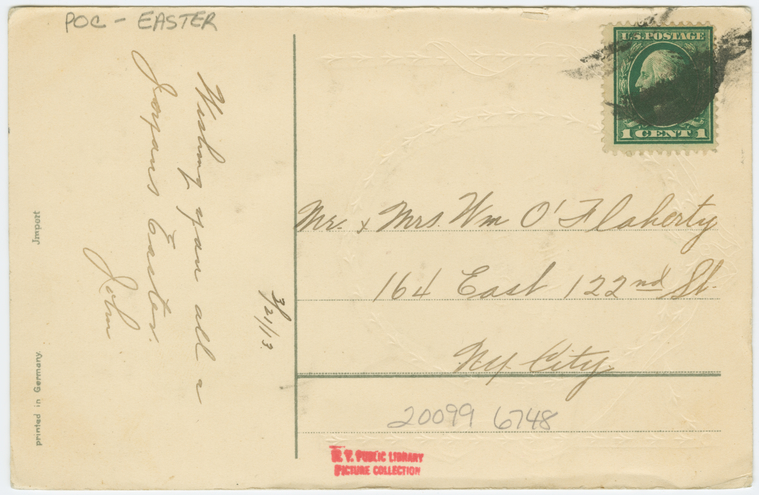 POC - EASTER
Wishing you all a
Joyous Easter.
John
3/21/13.
printed in Germany. Jmport
U.S. POSTAGE
1 CENT 1
Mr. & Mrs. Wm O'Flaherty
164 East 122nd St.
NY City
20099 6748
N. Y. PUBLIC LIBRARY
PICTURE COLLECTION